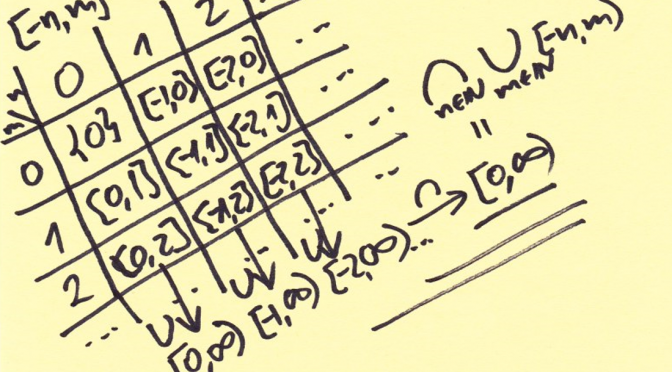 [-n,m]
n 0 1 2 ...
m
0 {0} [-1,0] [-2,0] ...
1 [0,1] [-1,1] [-2,1] ...
2 [0,2] [-1,2] [-2,2] ...
... ... ... ...
∪↓ ∪↓ ∪↓
[0,∞) [-1,∞) [-2,∞) ... ∩→ [0,∞)
∩ ∪ [-n,m)
n∈ℕ m∈ℕ
=